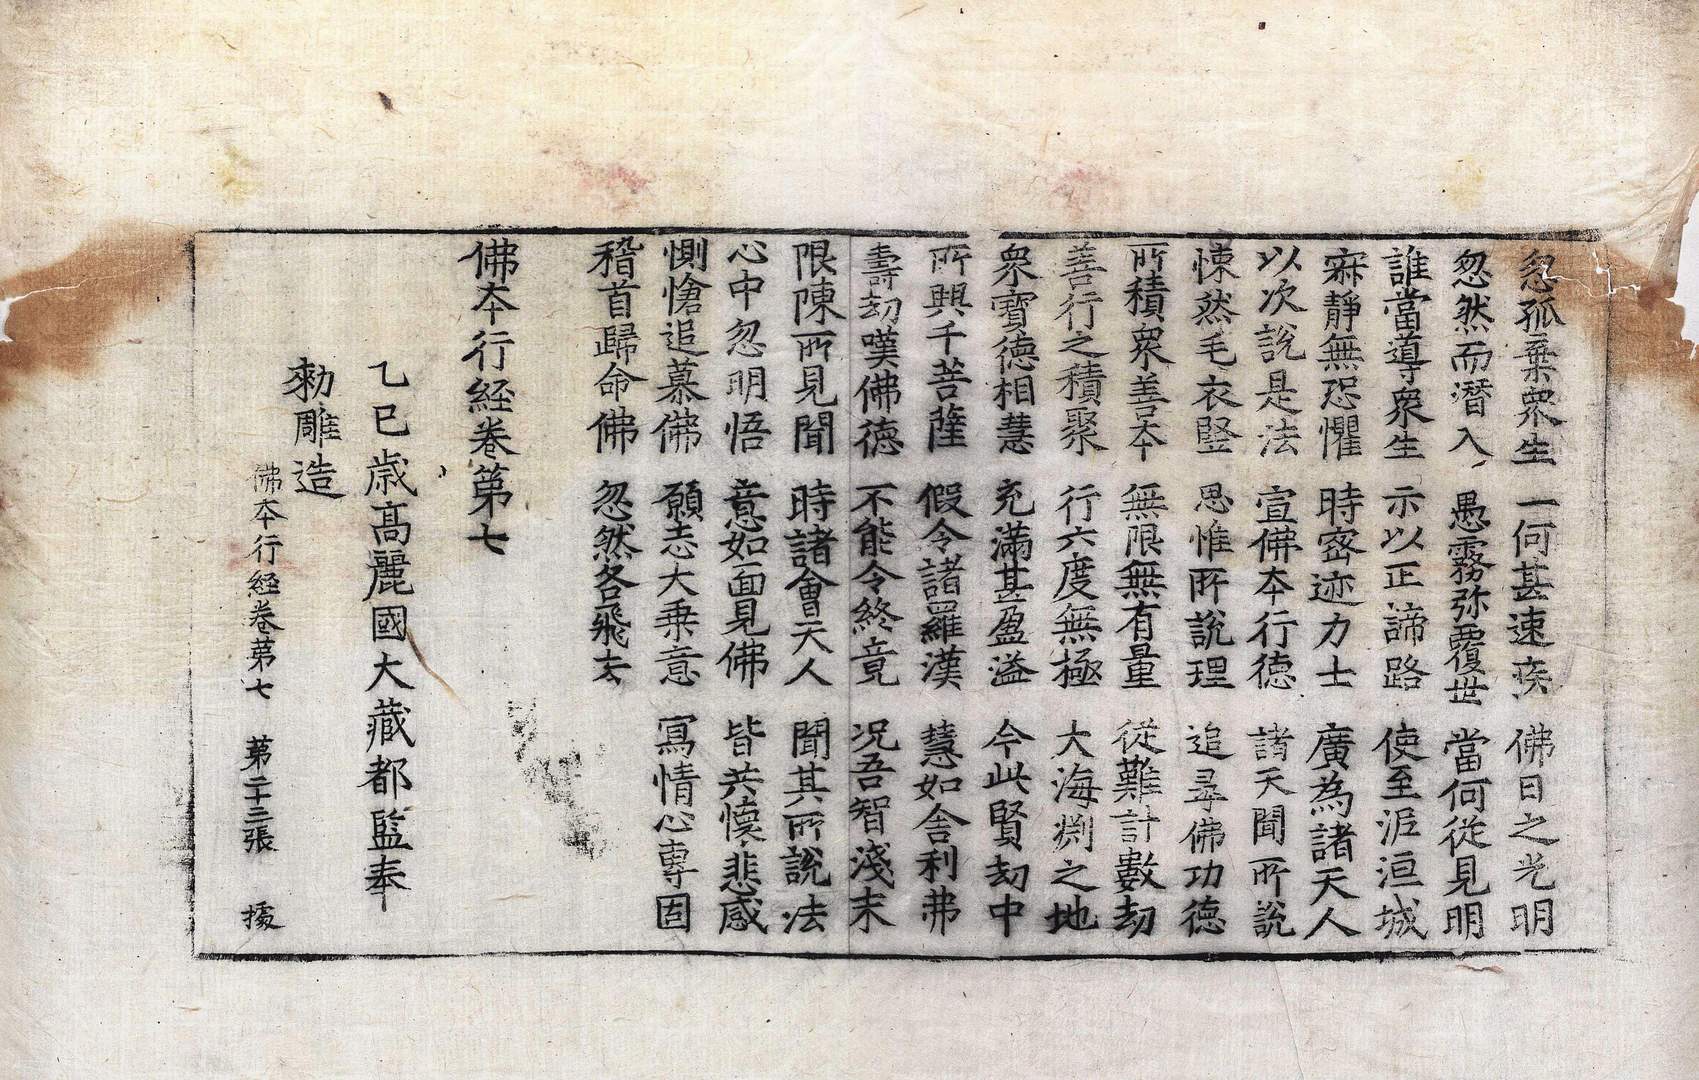 忽孤棄衆生 一何甚速疾 佛日之光明
忽然而潛入 愚霧弥覆世 當何從見明
誰當導衆生 示以正諦路 使至泥洹城
寂靜無恐懼 時密迹力士 廣為諸天人
以次說是法 宣佛本行德 諸天聞所說
悚然毛衣竪 思惟所說理 追尋佛功德
所積衆善本 無限無有量 從難計數劫
善行之積聚 行六度無極 大海渕之地
衆寶德相慧 充滿甚盈溢 今此賢劫中
所興千菩薩 假令諸羅漢 慧如舍利弗
壽劫嘆佛德 不能令終竟 况吾智淺末
限陳所見聞 時諸會天人 聞其所說法
心中忽明悟 意如面見佛 皆共懷悲感
惻愴追慕佛 願志大乗意 寫情心專固
稽首歸命佛 忽然各飛去
佛本行経卷第七
乙巳歲高麗國大藏都監奉
勅雕造
佛本行経卷第七 第二十三張 據